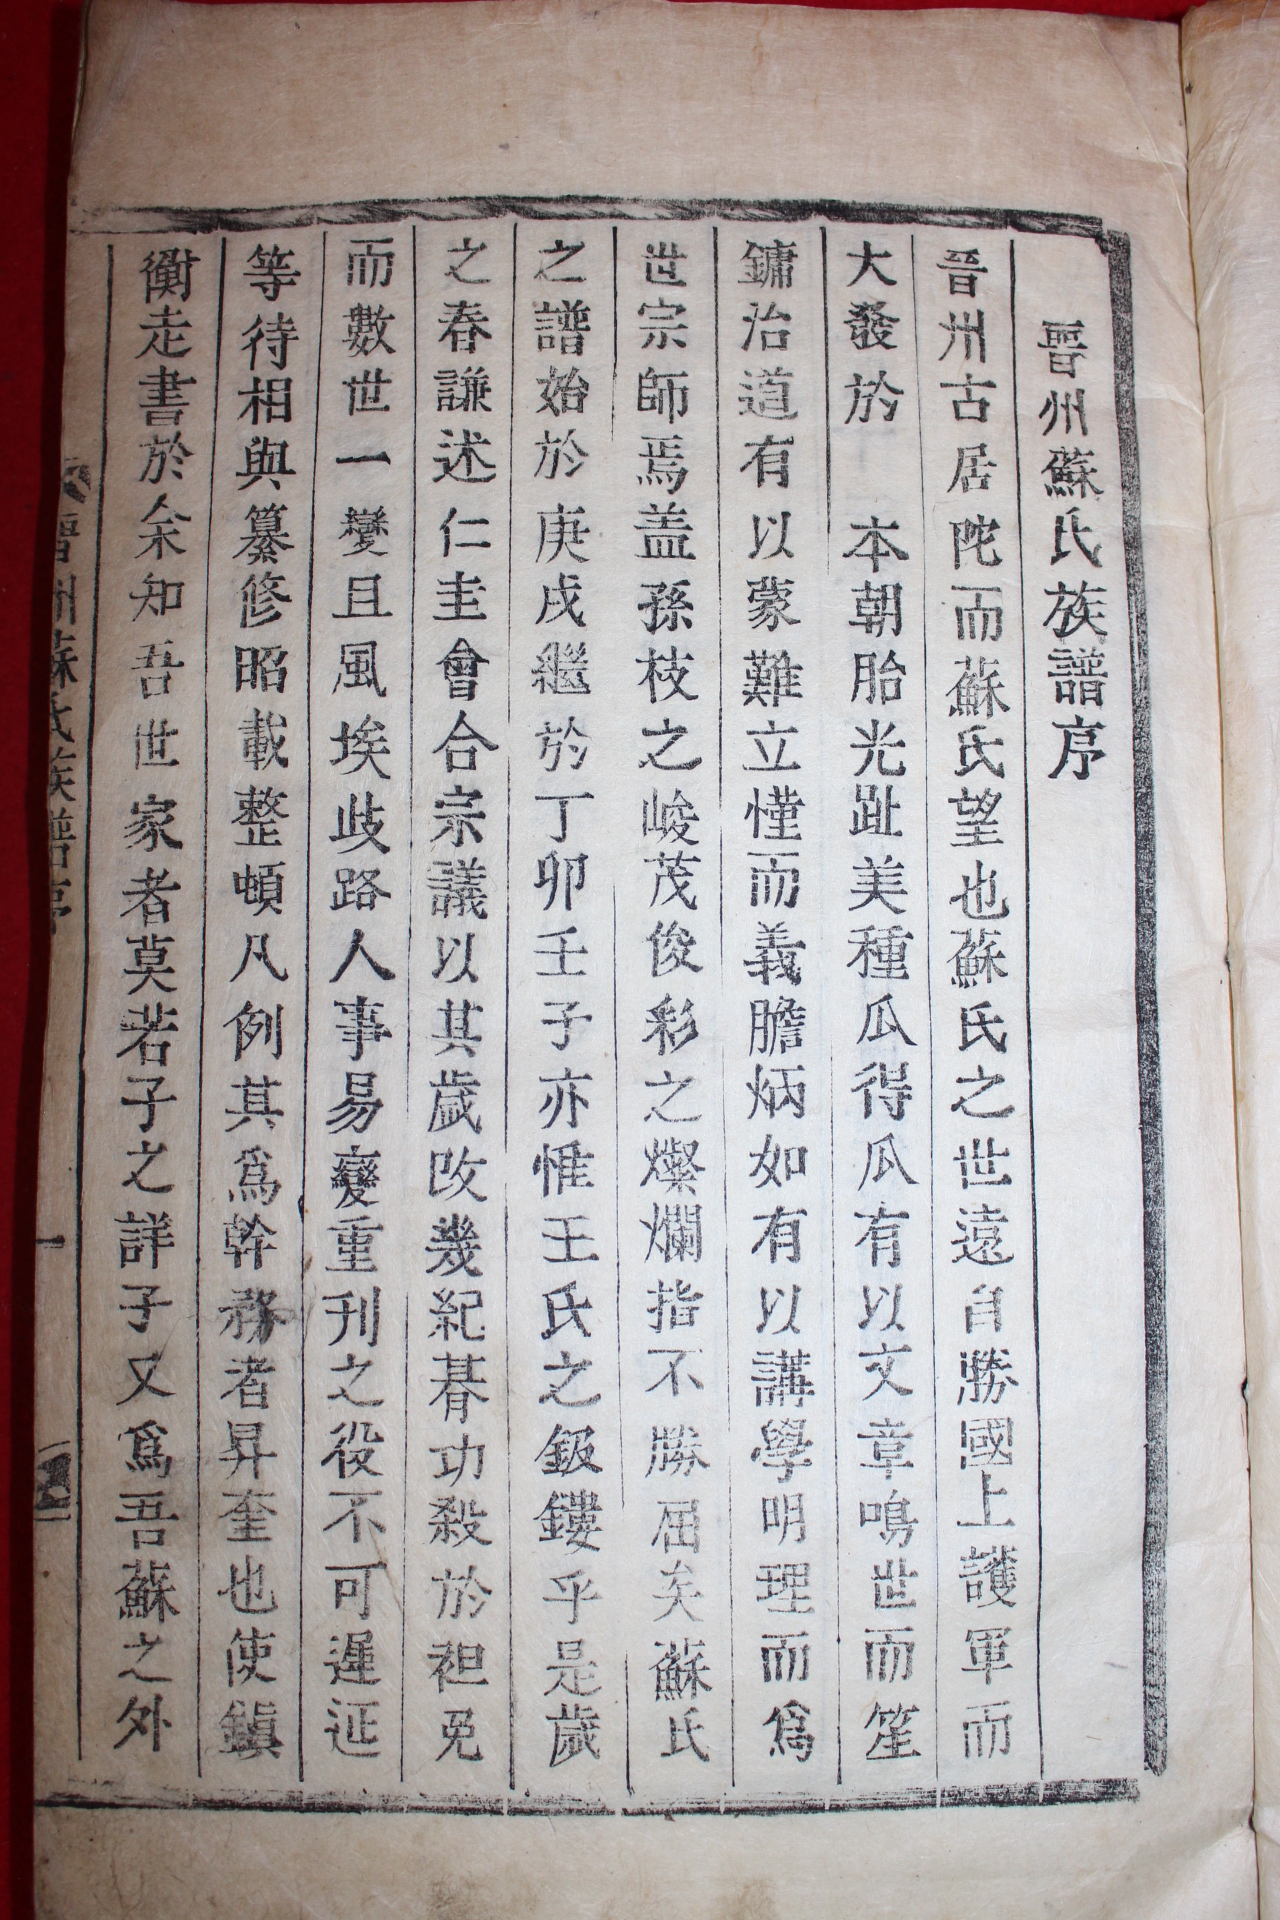 晉州蘇氏族譜序
晉州古居陀而蘇氏望也蘇氏之世遠自勝國上護軍而
大發於 本朝胎光趾美種瓜得瓜有以文章鳴世而笙
鏞治道有以蒙難立慬而義膽炳如有以講學明理而爲
世宗師焉盖孫枝之峻茂俊彩之燦爛指不勝屈矣蘇氏
之譜始於庚戌繼於丁卯壬子亦惟王氏之鈒鏤乎是歲
之春謙述仁圭會合宗議以其歲改幾紀朞功殺於袒免
而數世一變且風埃歧路人事易變重刊之役不可遲延
等待相與纂修昭載整頓凡例其爲幹務者昇奎也使鎭
衡走書於余知吾世家者莫若子之詳子又爲吾蘇之外
晉州蘇氏族譜序 一